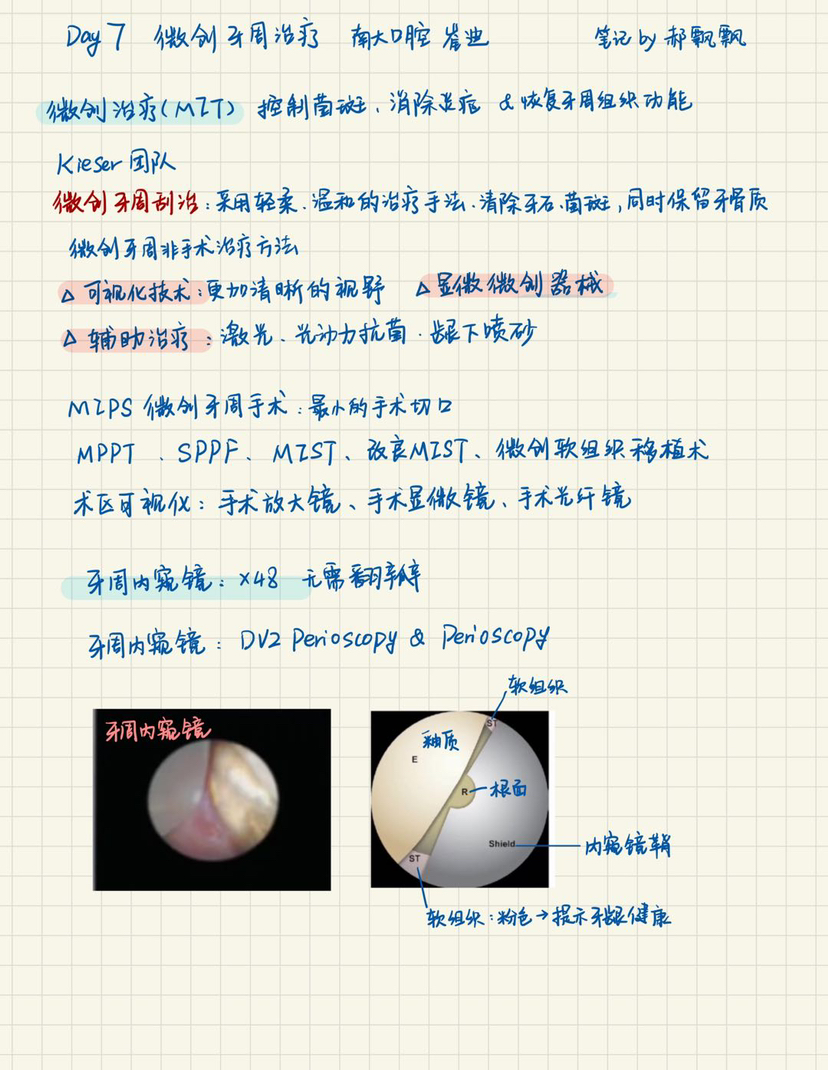 Day 7 微创牙周治疗 南大口腔 崔迪 笔记by 郝飘飘
微创治疗(MIT) 控制菌斑、消除炎症 & 恢复牙周组织功能
Kieser 团队
微创牙周刮治:采用轻柔、温和的治疗手法、清除牙石、菌斑,同时保留牙骨质
微创牙周非手术治疗方法
△ 可视化技术:更加清晰的视野 △ 显微微创器械
△ 辅助治疗:激光、光动力抗菌、龈下喷砂
MIPS 微创牙周手术:最小的手术切口
MPPT、SPPF、MIST、改良MIST、微创软组织移植术
术区可视仪:手术放大镜、手术显微镜、手术光纤镜
牙周内窥镜:×48 无需翻瓣
牙周内窥镜:DV2 Perioscopy & Perioscopy
软组织
牙周内窥镜
ST
釉质
E
R 根面
Shield 内窥镜鞘
ST
软组织:粉色→提示牙龈健康